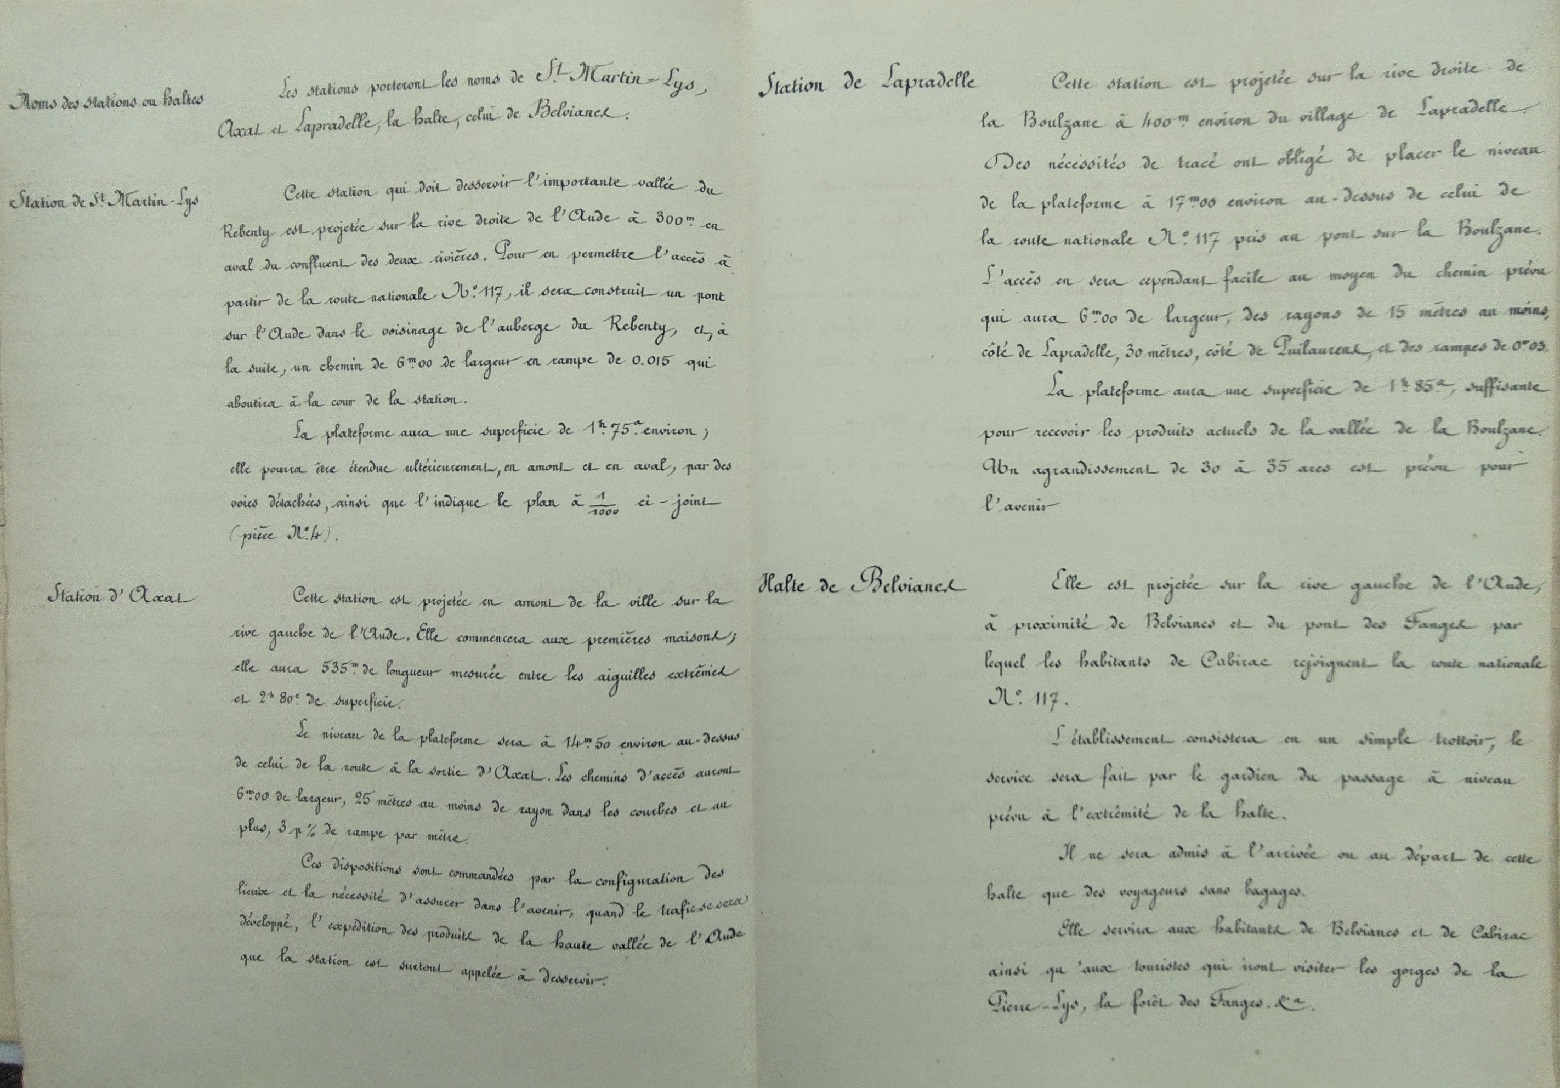 Noms des stations ou haltes
Les stations porteront les noms de St Martin-Lys,
Axat et Lapradelle, la halte, celui de Belvianes.
Station de St Martin-Lys
Cette station qui doit desservir l'importante vallée du
Rebenty est projetée sur la rive droite de l'Aude à 300m en
aval du confluent des deux rivières. Pour en permettre l'accès à
partir de la route nationale No 117, il sera construit un pont
sur l'Aude dans le voisinage de l'auberge du Rebenty, et, à
la suite, un chemin de 6m00 de largeur en rampe de 0.015 qui
aboutira à la cour de la station.
La plateforme aura une superficie de 1h 75a environ;
elle pourra être étendue ultérieurement, en amont et en aval, par des
voies détachées, ainsi que l'indique le plan à 1/1000 ci-joint
(pièce No 4).
Station d'Axat
Cette station est projetée en amont de la ville sur la
rive gauche de l'Aude. Elle commencera aux premières maisons;
elle aura 535m de longueur mesurée entre les aiguilles extrêmes
et 2h 80c de superficie.
Le niveau de la plateforme sera à 14m50 environ au-dessus
de celui de la route à la sortie d'Axat. Les chemins d'accès auront
6m00 de largeur, 25 mètres au moins de rayon dans les courbes et au
plus, 3 p % de rampe par mètre.
Ces dispositions sont commandées par la configuration des
lieux et la nécessité d'assurer dans l'avenir, quand le trafic se sera
développé, l'expédition des produits de la haute vallée de l'Aude
que la station est surtout appelée à desservir.
Station de Lapradelle
Cette station est projetée sur la rive droite de
la Boulzane à 400m environ du village de Lapradelle.
Des nécessités de tracé ont obligé de placer le niveau
de la plateforme à 17m00 environ au-dessus de celui de
la route nationale No 117 pris au pont sur la Boulzane.
L'accès en sera cependant facile au moyen du chemin prévu
qui aura 6m00 de largeur, des rayons de 15 mètres au moins,
côté de Lapradelle, 30 mètres, côté de Puilaurens, et des rampes de 0m03.
La plateforme aura une superficie de 1h 85a, suffisante
pour recevoir les produits actuels de la vallée de la Boulzane.
Un agrandissement de 30 à 35 ares est prévu pour
l'avenir
Halte de Belvianes
Elle est projetée sur la rive gauche de l'Aude,
à proximité de Belvianes et du pont des Fanges par
lequel les habitants de Cabirac rejoignent la route nationale
No 117.
L'établissement consistera en un simple trottoir, le
service sera fait par le gardien du passage à niveau
prévu à l'extrémité de la halte.
Il ne sera admis à l'arrivée ou au départ de cette
halte que des voyageurs sans bagages.
Elle servira aux habitants de Belvianes et de Cabirac
ainsi qu'aux touristes qui iront visiter les gorges de la
Pierre-Lys, la forêt des Fanges. &a.